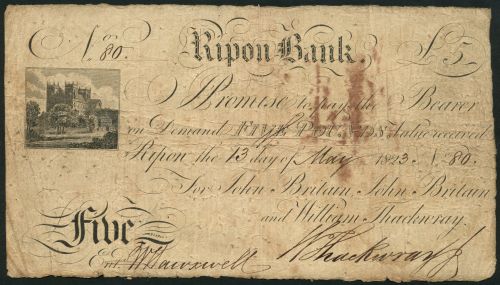 No. 80. Ripon Bank £5
I Promise to pay the Bearer
on Demand FIVE POUNDS Value received
Ripon the 13 day of May 1823 No. 80.
For John Britain, John Britain
and William Thackwray.
Five
Entd.
W Thackwray Jr